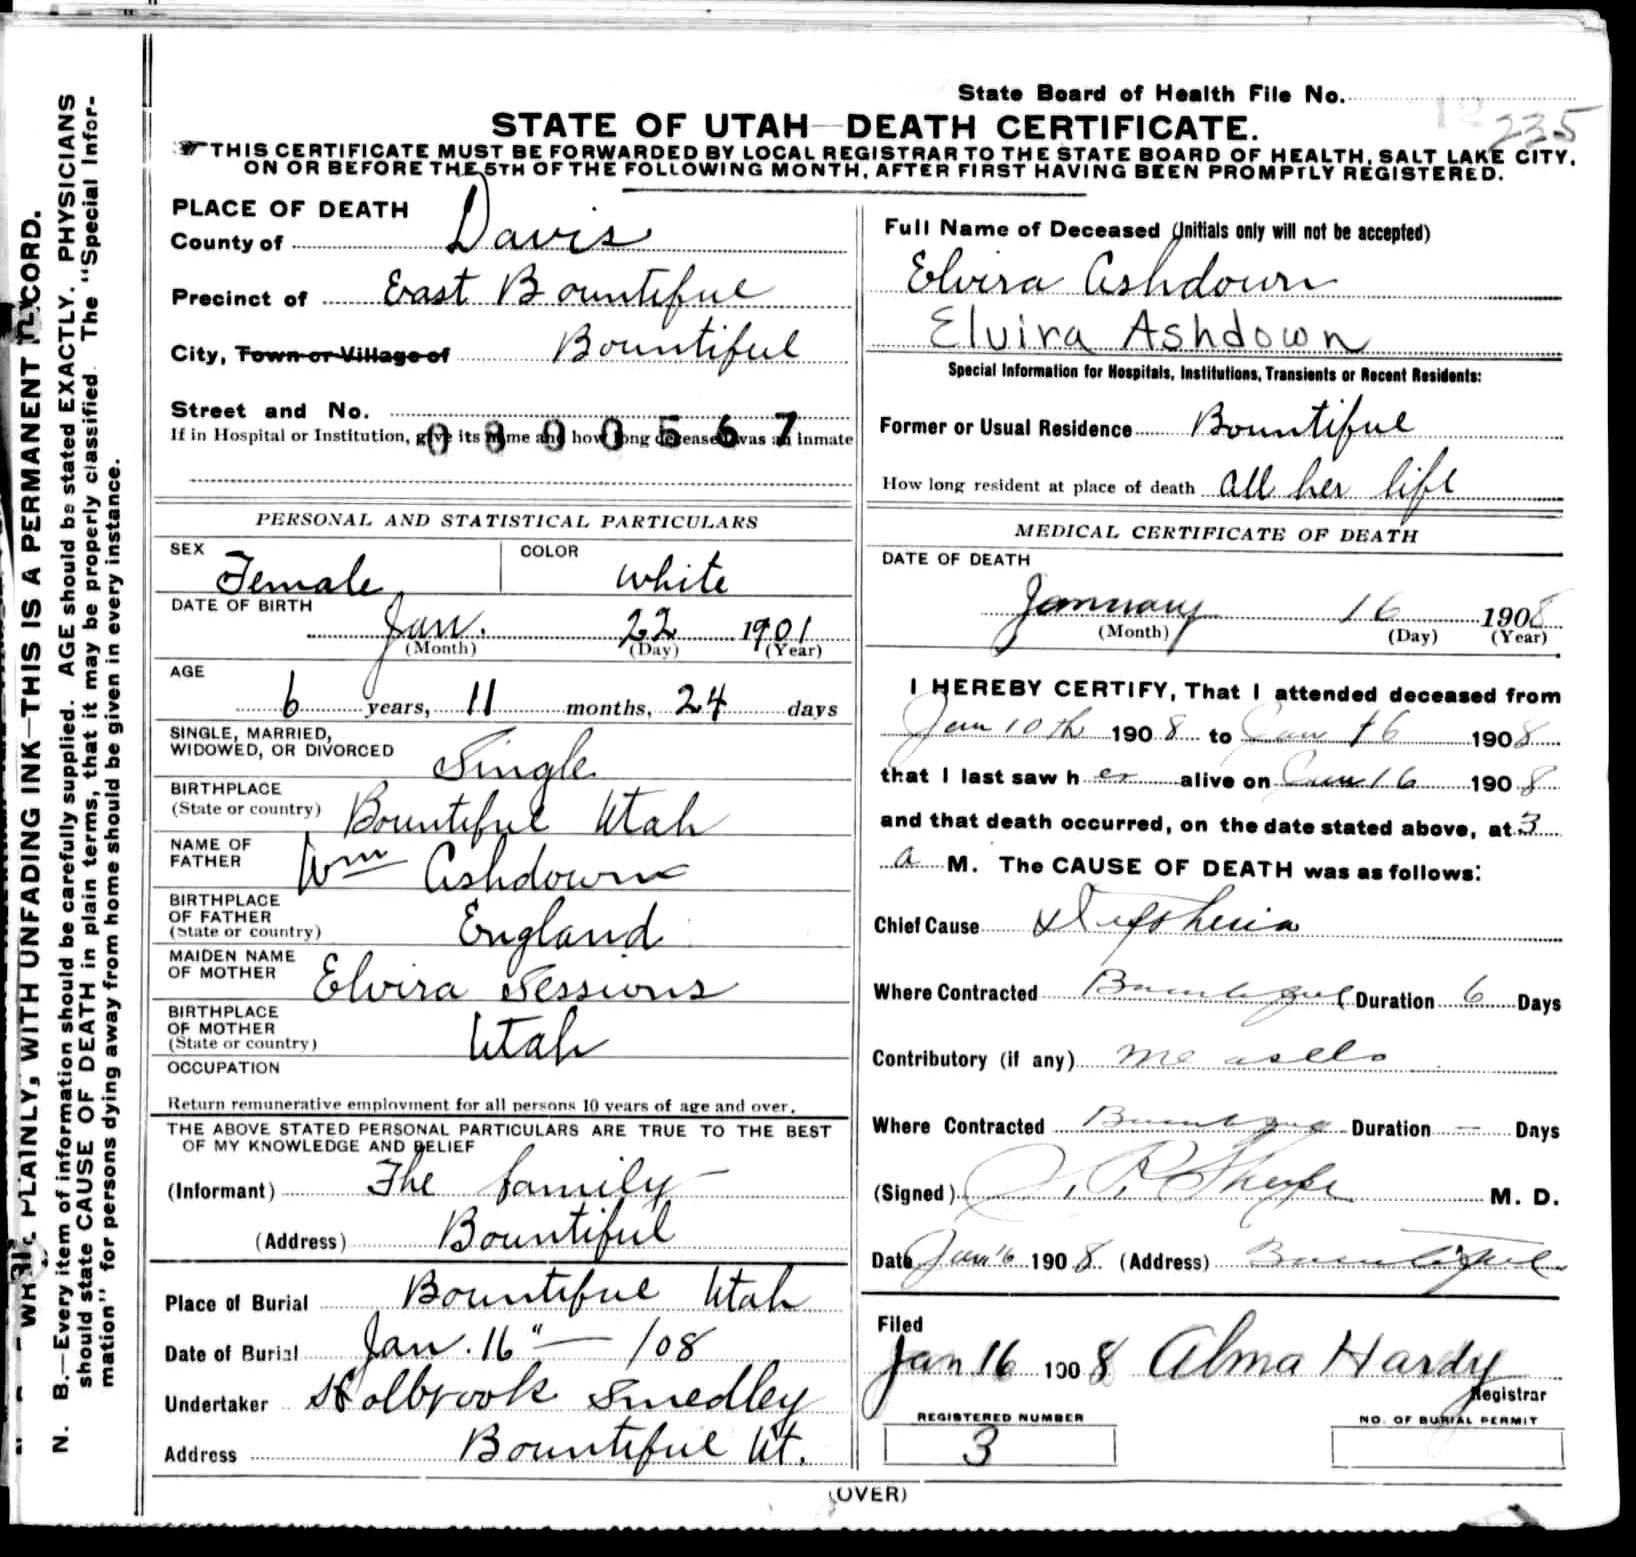 WRITE PLAINLY, WITH UNFADING INK—THIS IS A PERMANENT RECORD.
N. B.—Every item of information should be carefully supplied. AGE should be stated EXACTLY. PHYSICIANS
should state CAUSE OF DEATH in plain terms, that it may be properly classified. The "Special Infor-
mation" for persons dying away from home should be given in every instance.
State Board of Health File No.
235
STATE OF UTAH—DEATH CERTIFICATE.
THIS CERTIFICATE MUST BE FORWARDED BY LOCAL REGISTRAR TO THE STATE BOARD OF HEALTH, SALT LAKE CITY,
ON OR BEFORE THE 5TH OF THE FOLLOWING MONTH, AFTER FIRST HAVING BEEN PROMPTLY REGISTERED.
PLACE OF DEATH
County of Davis
Precinct of East Bountiful
City, Town or Village of Bountiful
Street and No.
If in Hospital or Institution, give its name and how long deceased was an inmate
0300567
PERSONAL AND STATISTICAL PARTICULARS
SEX Female COLOR White
DATE OF BIRTH
Jan. 22 1901
(Month) (Day) (Year)
AGE
6 years, 11 months, 24 days
SINGLE, MARRIED,
WIDOWED, OR DIVORCED Single
BIRTHPLACE
(State or country) Bountiful Utah
NAME OF
FATHER Wm Ashdown
BIRTHPLACE
OF FATHER
(State or country) England
MAIDEN NAME
OF MOTHER Elvira Sessions
BIRTHPLACE
OF MOTHER
(State or country) Utah
OCCUPATION
Return remunerative employment for all persons 10 years of age and over.
THE ABOVE STATED PERSONAL PARTICULARS ARE TRUE TO THE BEST
OF MY KNOWLEDGE AND BELIEF
(Informant) The family
(Address) Bountiful
Place of Burial Bountiful Utah
Date of Burial Jan. 16" — /08
Undertaker Holbrook Smedley
Address Bountiful Ut.
Full Name of Deceased (Initials only will not be accepted)
Elvira Ashdown
Elvira Ashdown
Special Information for Hospitals, Institutions, Transients or Recent Residents:
Former or Usual Residence Bountiful
How long resident at place of death all her life
MEDICAL CERTIFICATE OF DEATH
DATE OF DEATH
January 16 1908
(Month) (Day) (Year)
I HEREBY CERTIFY, That I attended deceased from
Jan 10th 1908 to Jan 16 1908
that I last saw her alive on Jan 16 1908
and that death occurred, on the date stated above, at 3
a M. The CAUSE OF DEATH was as follows:
Chief Cause Diptheria
Where Contracted Bountiful Duration 6 Days
Contributory (if any) measels
Where Contracted Bountiful Duration — Days
(Signed) M. D.
Date Jan 16 1908 (Address) Bountiful
Filed
Jan 16 1908 Alma Hardy
Registrar
REGISTERED NUMBER
3
NO. OF BURIAL PERMIT
(OVER)